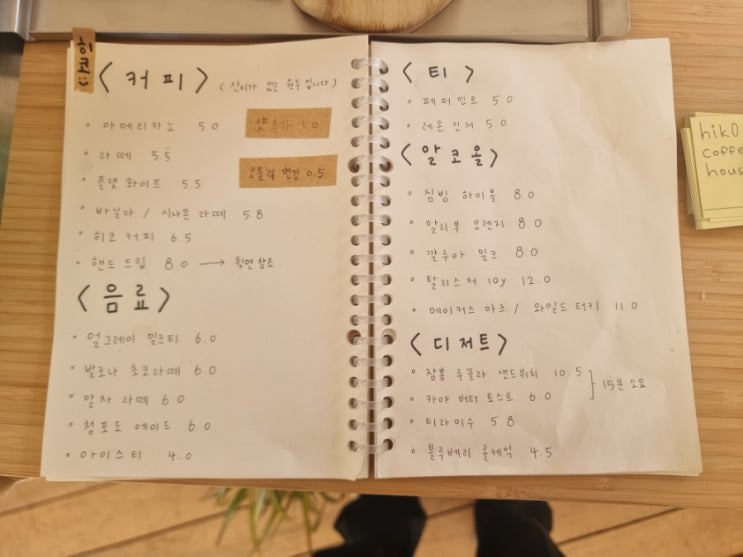 히코
:)
< 커피 > ( 산미가 있는 원두입니다 )
• 아메리카노 5.0
샷 추가 1.0
• 라떼 5.5
오틀리 변경 0.5
• 플랫 화이트 5.5
• 바닐라 / 시나몬 라떼 5.8
• 히코 커피 6.5
• 핸드 드립 8.0 → 뒷면 참조
< 음료 >
• 얼그레이 밀크티 6.0
• 발로나 초코라떼 6.0
• 말차 라떼 6.0
• 청포도 에이드 6.0
• 아이스티 4.0
< 티 >
• 페퍼민트 5.0
• 레몬 진저 5.0
< 알코올 >
• 짐빔 하이볼 8.0
• 말리부 오렌지 8.0
• 깔루아 밀크 8.0
• 탈리스커 10y 12.0
• 메이커스 마크 / 와일드 터키 11.0
< 디저트 >
• 잠봉 루꼴라 샌드위치 10.5
• 카야 버터 토스트 6.0
15분 소요
• 티라미수 5.8
• 블루베리 롤케익 4.5
hiko
coffee
hous